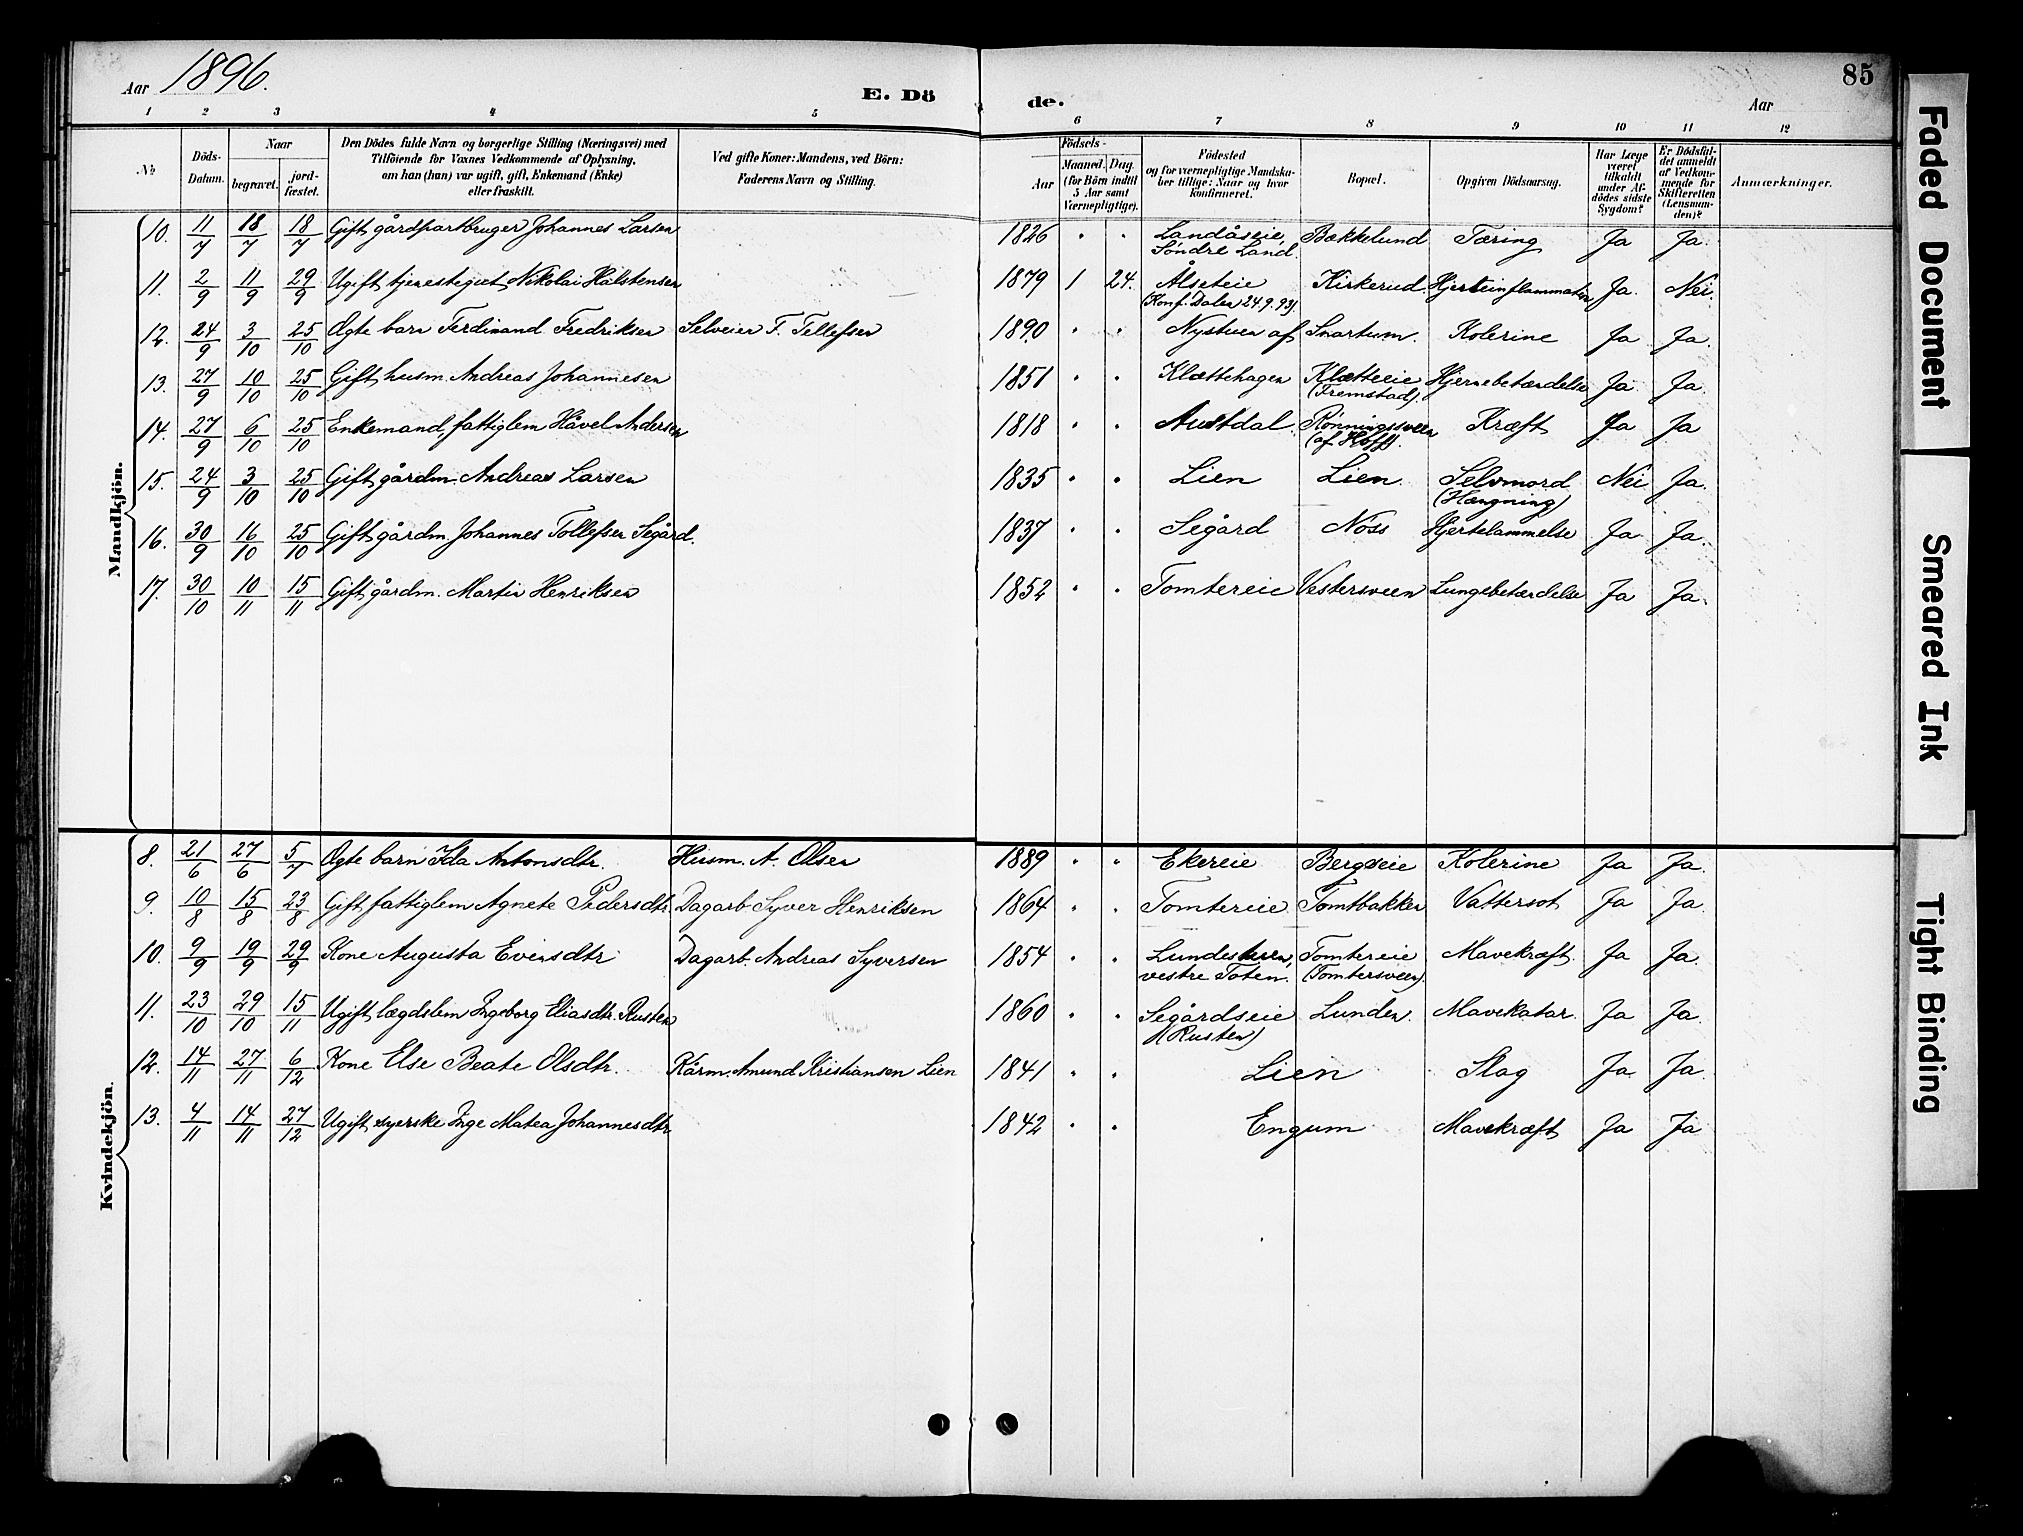 Aar 1896.
E. Dö
de.
Aar
85
1 2 3 4 5 6 7 8 9 10 11 12
No
Döds-Datum.
Naar
begravet.
jord-fæstet.
Den Dödes fulde Navn og borgerlige Stilling (Næringsvei) med
Tilföiende for Voxnes Vedkommende af Oplysning,
om han (hun) var ugift, gift, Enkemand (Enke)
eller fraskilt.
Ved gifte Koner: Mandens, ved Börn:
Faderens Navn og Stilling.
Födsels-
Aar
Maaned. Dag.
(for Börn indtil
5 Aar samt
Værnepligtige).
Födested
og for værnepligtige Mandska-
ber tillige: Naar og hvor
konfirmeret.
Bopæl.
Opgiven Dödsaarsag.
Har Læge
været
tilkaldt
under Af-
dödes sidste
Sygdom?
Er Dödsfal-
det anmeldt
af Vedkom-
mende for
Skifteretten
(Lensman-
den)?
Anmærkninger.
Mandkjön.
10. 11/7 18/7 18/7 Gift gårdpartbruger Johannes Larsen 1826 " " Landåseie, Søndre Land. Bækkelund Tæring Ja Ja.
11. 2/9 11/9 29/9 Ugift tjenestegut Nikolai Halstensen 1879 1 24. Ålseteie (Konf. Dalen 24.9.93) Kirkerud. Hjerteinflammation Ja. Nei.
12. 24/9 3/10 25/10 Ægte barn Ferdinand Fredriksen Selveier F. Tellefsen 1890 " " Nystuen af Snartum. Kolerine Ja Ja.
13. 27/9 10/10 25/10 Gift husm. Andreas Johannesen 1851 " " Klættehagen Klætteeie (Fremstad). Hjernebetændelse Ja. Ja.
14. 27/9 6/10 25/10 Enkemand, fattiglem Håvel Andersen 1818 " " Austdal. Rønningssveen (af Hoff). Kræft Ja Ja
15. 24/9 3/10 25/10 Gift gårdm. Andreas Larsen 1835 " " Lien Lien. Selvmord (Hængning) Nei Ja.
16. 30/9 16/10 25/10 Gift gårdm. Johannes Tollefsen Segård. 1837 " " Segård Nøss Hjertelammelse Ja Ja.
17. 30/10 10/11 15/11 Gift gårdm. Martin Henriksen 1852 " " Tomtereie Vestersveen Lungebetændelse Ja Ja.
Kvindekjön.
8. 21/6 27/6 5/7 Ægte barn Ida Antonsdtr. Husm. A. Olsen 1889 " " Ekereie Bergseie Kolerine Ja Ja.
9. 10/8 15/8 23/8 Gift fattiglem Agnete Pedersdtr. Dagarb. Syver Henriksen 1864 " " Tomtereie Tomtbakken Vattersot Ja Ja.
10. 9/9 19/9 29/9 Kone Augusta Evensdtr Dagarb. Andreas Syversen 1854 " " vestre Toten. Tomtereie (Tomtersveen). Mavekræft. Ja Ja.
11. 23/10 29/10 15/11 Ugift lægdslem Ingeborg Eliasdtr. Rusten 1860 " " Segårdseie (Rusten) Lunden. Mavekatar. Ja Ja.
12. 14/11 27/11 6/12 Kone Else Beate Olsdtr. Kårm. Amund Kristiansen Lien 1841 " " Lien Slag Ja. Ja.
13. 4/11 14/11 27/12 Ugift syerske Inge Matea Johannesdtr. 1842 " " Engum Mavekræft Ja Ja
Faded Document
Smeared Ink
Tight Binding